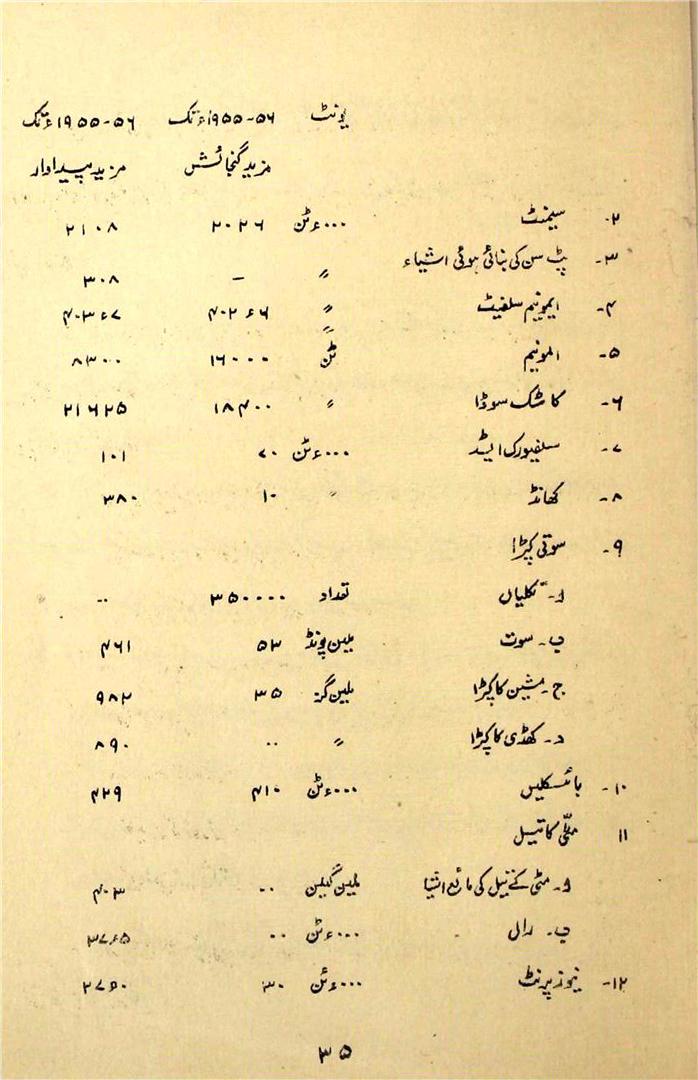 یونٹ ۵۶-۱۹۵۵ء تک ۵۶-۱۹۵۵ء تک
مزید گنجائش مزید پیداوار
۲- سیمنٹ ۰۰۰ءٹن ۲۰۲۶ ۲۱۰۸
۳- پٹ سن کی بنائی ہوئی اشیاء ״ — ۳۰۸
۴- ایمونیم سلفیٹ ״ ۴۰۲ء۶ ۴۰۳ء۷
۵- المونیم ٹن ۱۶۰۰۰ ۸۳۰۰
۶- کاسٹک سوڈا ״ ۱۸۴۰۰ ۲۱۶۲۵
۷- سلفیورک ایسڈ ۰۰۰ءٹن ۷۰ ۱۰۱
۸- کھانڈ ״ ۱۰ ۳۸۰
۹- سوتی کپڑا
ا- تکلیاں تعداد ۳۵۰۰۰۰ ۰۰
ب- سوت بلین پونڈ ۵۳ ۴۶۱
ج- مشین کا کپڑا بلین گز ۳۵ ۹۸۲
د- کھڈی کا کپڑا ״ ۰۰ ۸۹۰
۱۰- بائسکلیں ۰۰۰ءٹن ۴۱۰ ۴۲۹
۱۱ مٹی کا تیل
ا- مٹی کے تیل کی مائع اشیا ملین گیلن ۰۰ ۴۰۳
ب- رال ۰۰۰ءٹن ۰۰ ۳۷ء۶۵
۱۲- نیوز پرنٹ ۰۰۰ءٹن ۳۰
۳۵